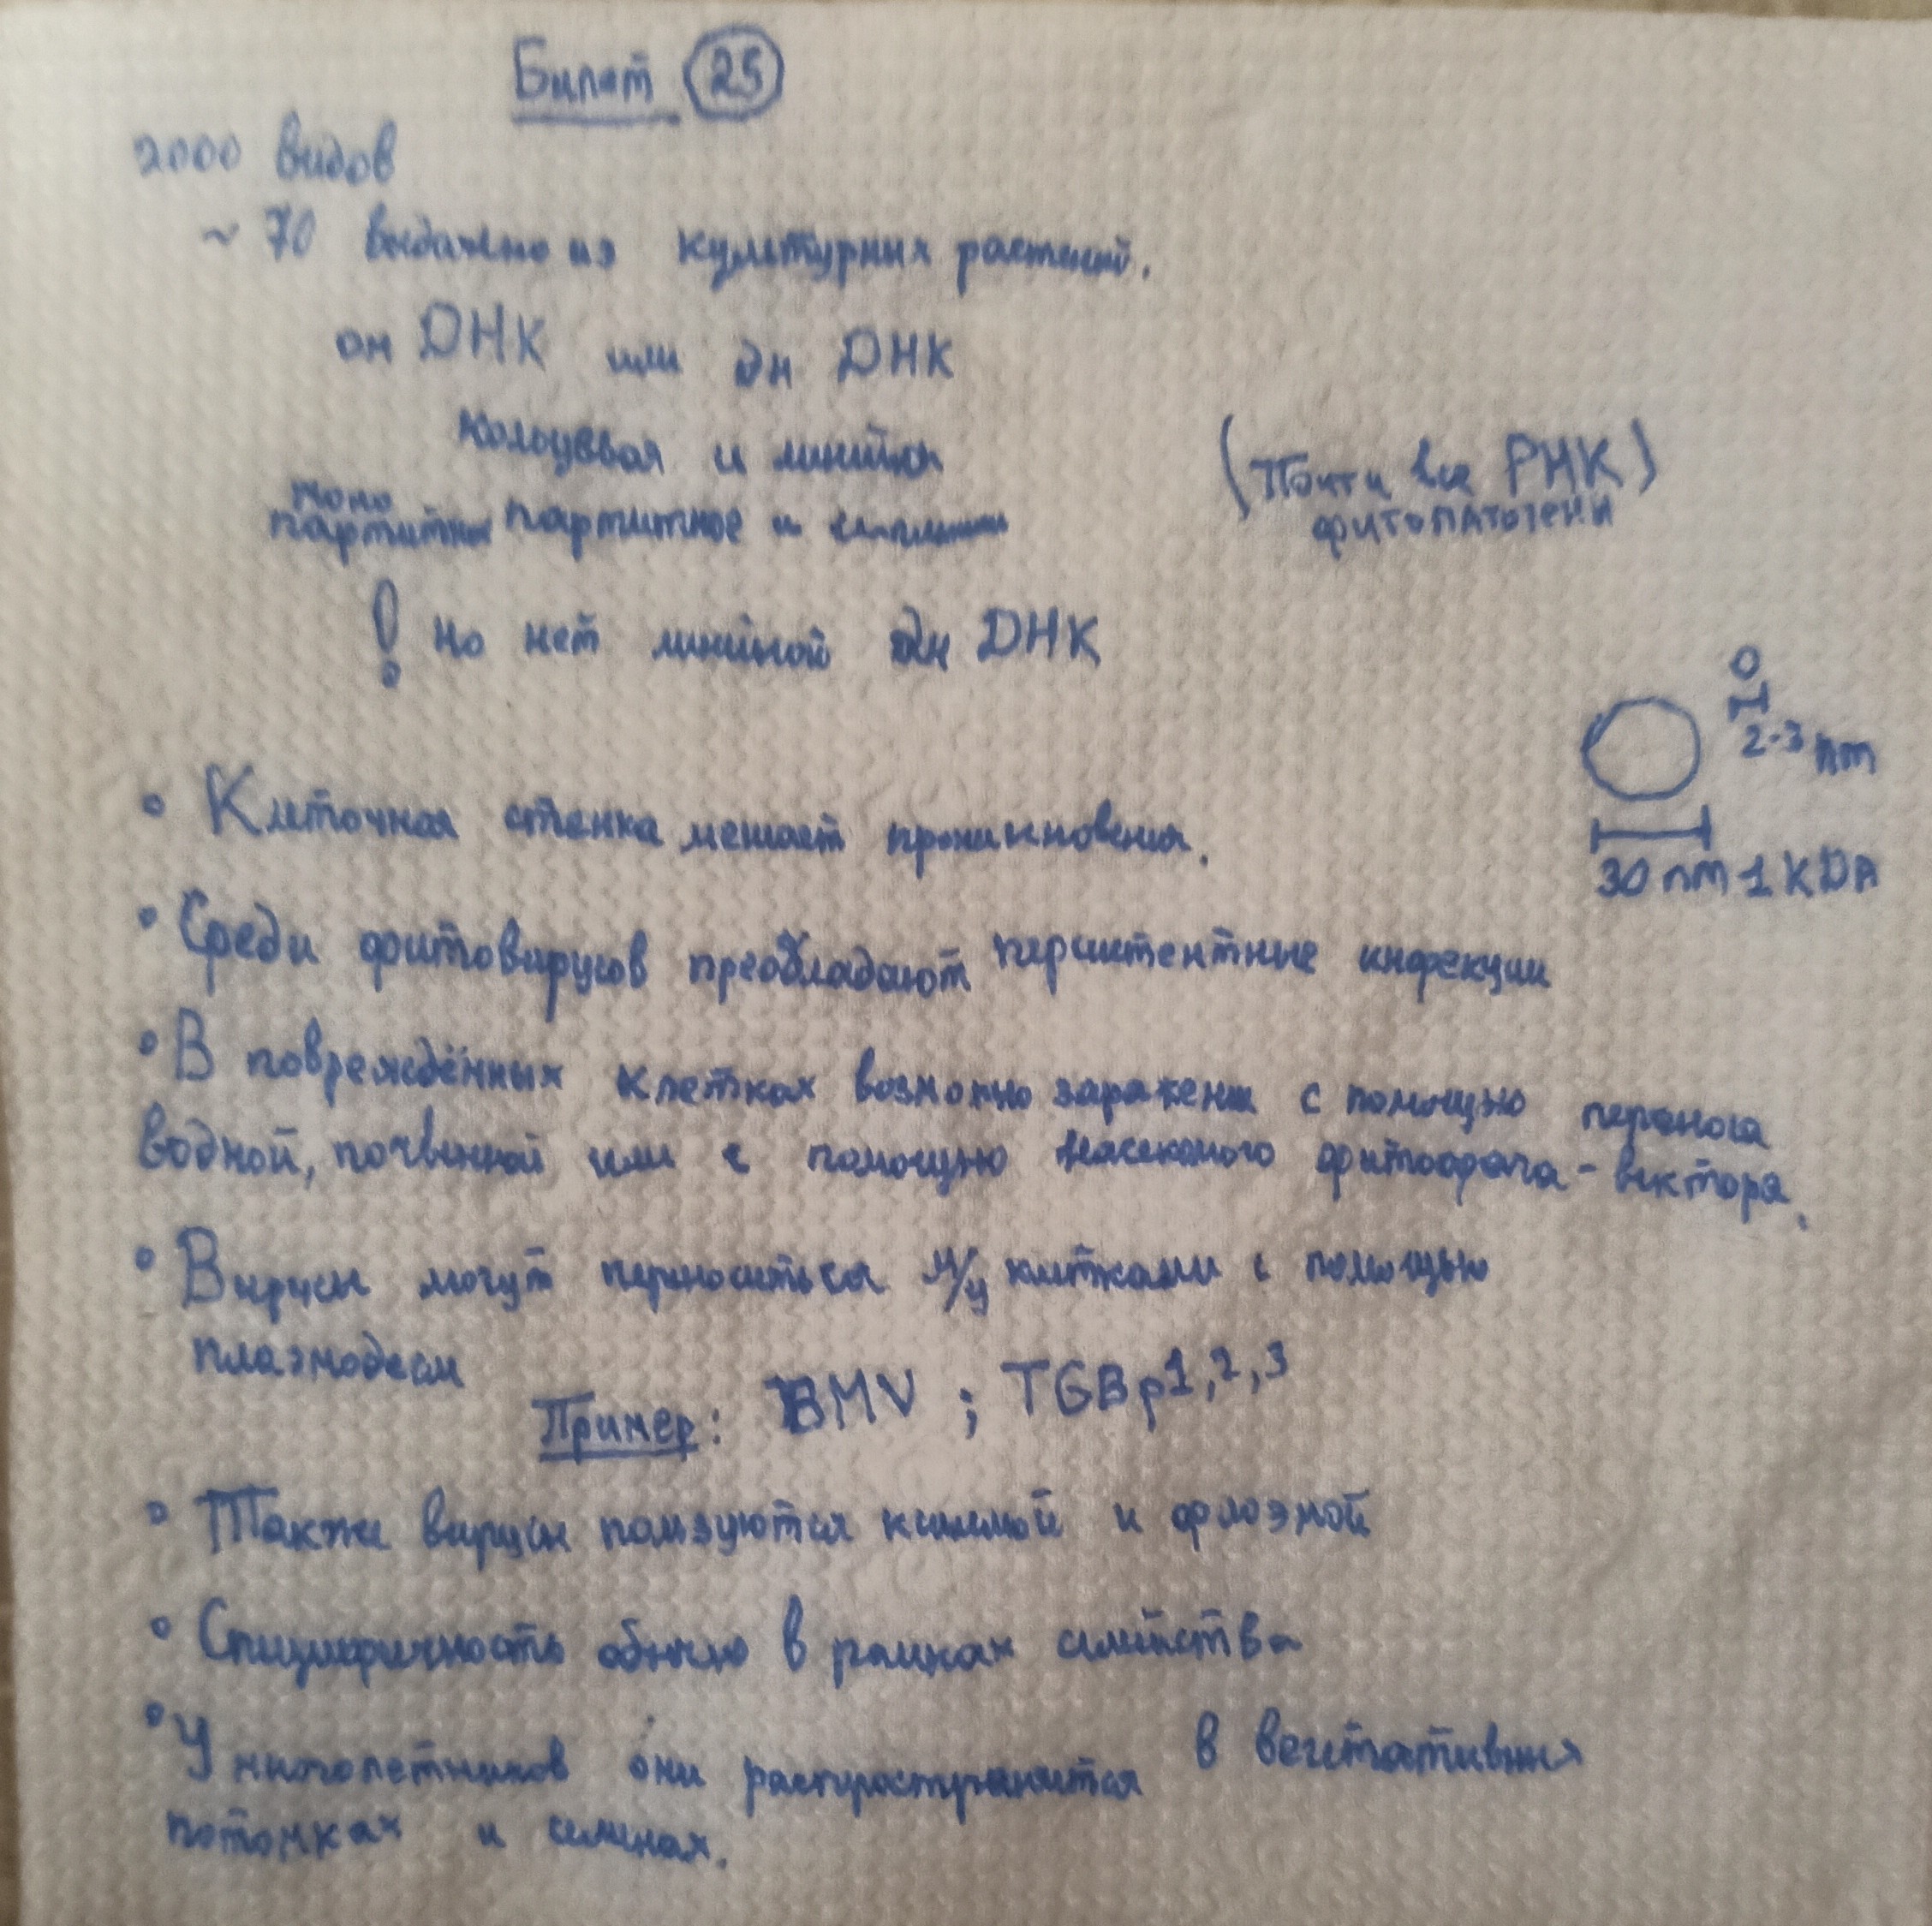 Билет 25
2000 видов
~ 70 выделено из культурных растений.
он ДНК или дн ДНК
кольцевая и линейная
(Почти все РНК)
фитопатогены
моно
партитные партитное и
! но нет линейной дн ДНК
2-3 nm
30 nm 1 KDA
• Клеточная стенка мешает проникновения.
• Среди фитовирусов преобладают персистентные инфекции
• В повреждённых клетках возможно заражение с помощью переноса
водной, почвенной или с помощью насекомого - вектора.
• Вирусы могут переноситься м/у клетками с помощью
плазмодесм
Пример: BMV ; TGBp1,2,3
• Также вирусы пользуются ксилемой и флоэмой
• Специфичность обычно в рамках семейства
• У многолетников они распространяются в вегетативных
потомках и семенах.